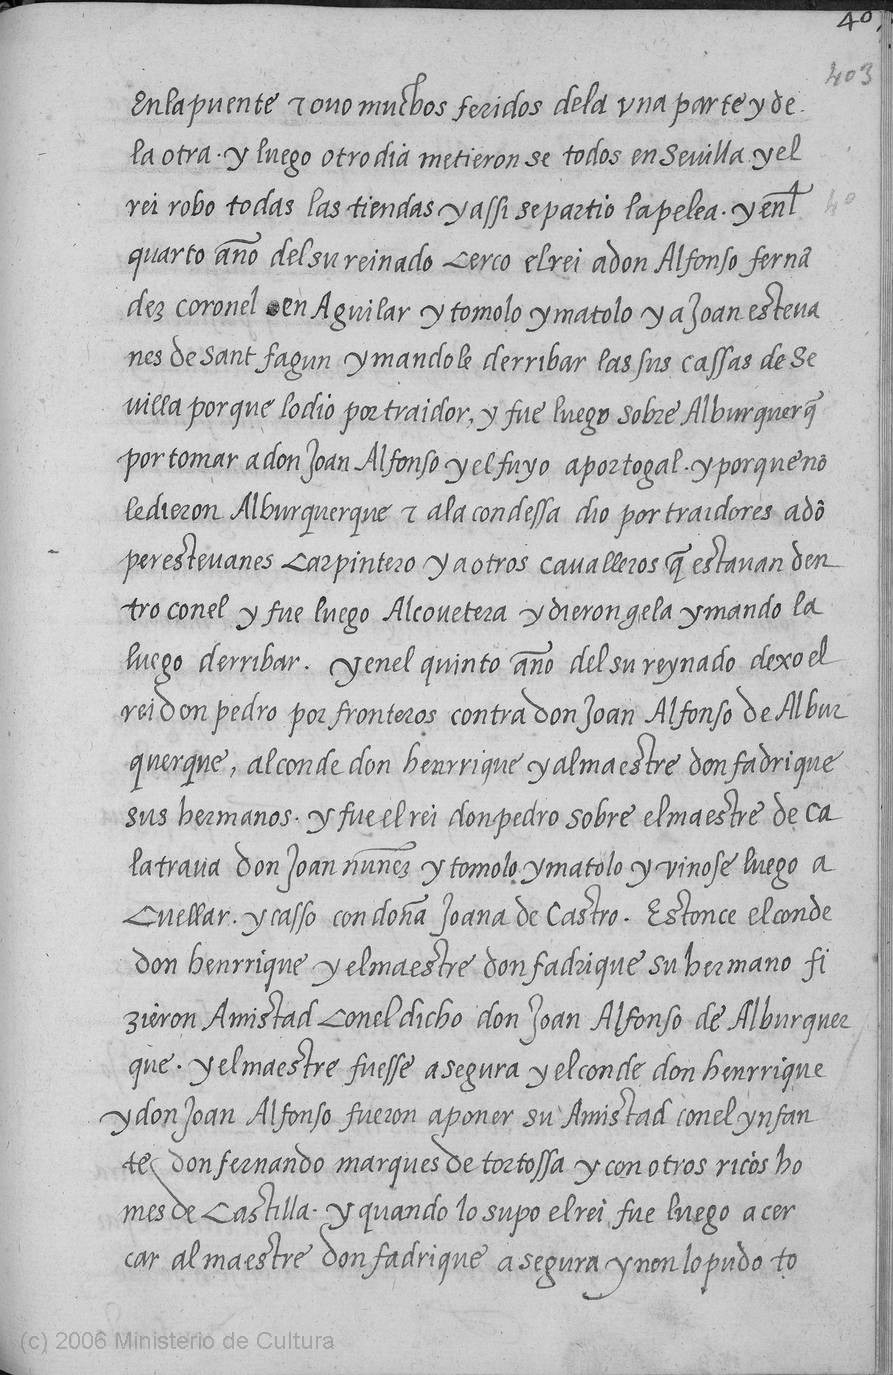 40
403
40
Enla puente τ ouo muchos feridos dela vna parte y de
la otra. y luego otro dia metieron se todos en Sevilla y el
rei robo todas las tiendas y assi se partio la pelea. y enl
quarto año del su reinado Cerco el rei a don Alfonso fernã
dez coronel en Aguilar y tomolo y matolo y a Joan esteua
nes de Sant fagun y mandole derribar las sus cassas de Se
uilla porque lo dio por traidor, y fue luego sobre Alburquerq̃
por tomar a don Joan Alfonso y el fuyo a portogal. y porque nõ
le dieron Alburquerque τ a la condessa dio por traidores a dõ
per esteuanes Carpintero y a otros caualleros q̃ estauan den
tro con el y fue luego Alcouetera y dieron gela y mando la
luego derribar. y en el quinto año del su reynado dexo el
rei don pedro por fronteros contra don Joan Alfonso de Albur
querque, al conde don henrrique y al maestre don fadrique
sus hermanos. y fue el rei don pedro sobre el maestre de Ca
latraua don Joan nuñez y tomolo y matolo y vinose luego a
Cuellar. y casso con doña Joana de Castro. Estonce el conde
don henrrique y el maestre don fadrique su hermano fi
zieron Amistad Con el dicho don Joan Alfonso de Alburquer
que. y el maestre fuesse a segura y el conde don henrrique
y don Joan Alfonso fueron a poner su Amistad con el ynfan
te don fernando marques de tortossa y con otros ricos ho
mes de Castilla. y quando lo supo el rei fue luego a cer
car al maestre don fadrique a segura y non lo pudo to
(c) 2006 Ministerio de Cultura